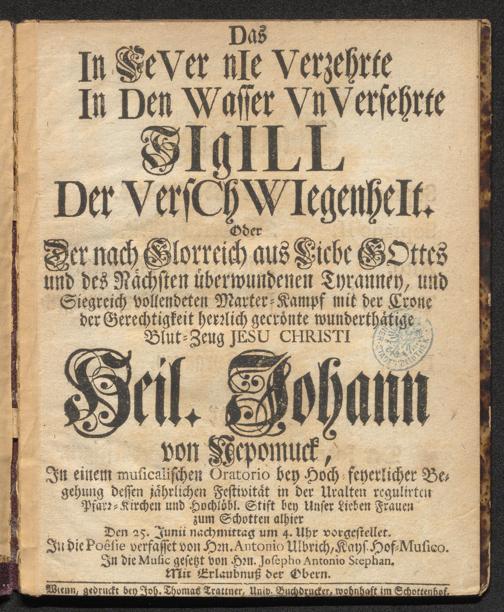 Das
In FeVer nIe Verzehrte
In Den Wasser VnVersehrte
SIgILL
Der VersChWIegenheIt.
Oder
Der nach Glorreich aus Liebe GOttes
und des Nächsten überwundenen Tyranney, und
Siegreich vollendeten Marter-Kampf mit der Crone
der Gerechtigkeit herrlich gecrönte wunderthätige
Blut-Zeug JESU CHRISTI
Heil. Johann
von Nepomuck,
In einem musicalischen Oratorio bey Hoch-feyerlicher Be-
gehung dessen jährlichen Festivität in der Uralten regulirten
Pfarr-Kirchen und Hochlöbl. Stift bey Unser Lieben Frauen
zum Schotten alhier
Den 25. Junii nachmittag um 4. Uhr vorgestellet.
In die Poësie verfasset von Hrn. Antonio Ulbrich, Kays. Hof-Musico.
In die Music gesetzt von Hrn. Josepho Antonio Stephan.
Mit Erlaubnuß der Obern.
Wienn, gedruckt bey Joh. Thomas Trattner, Univ. Buchdrucker, wohnhaft im Schottenhof.